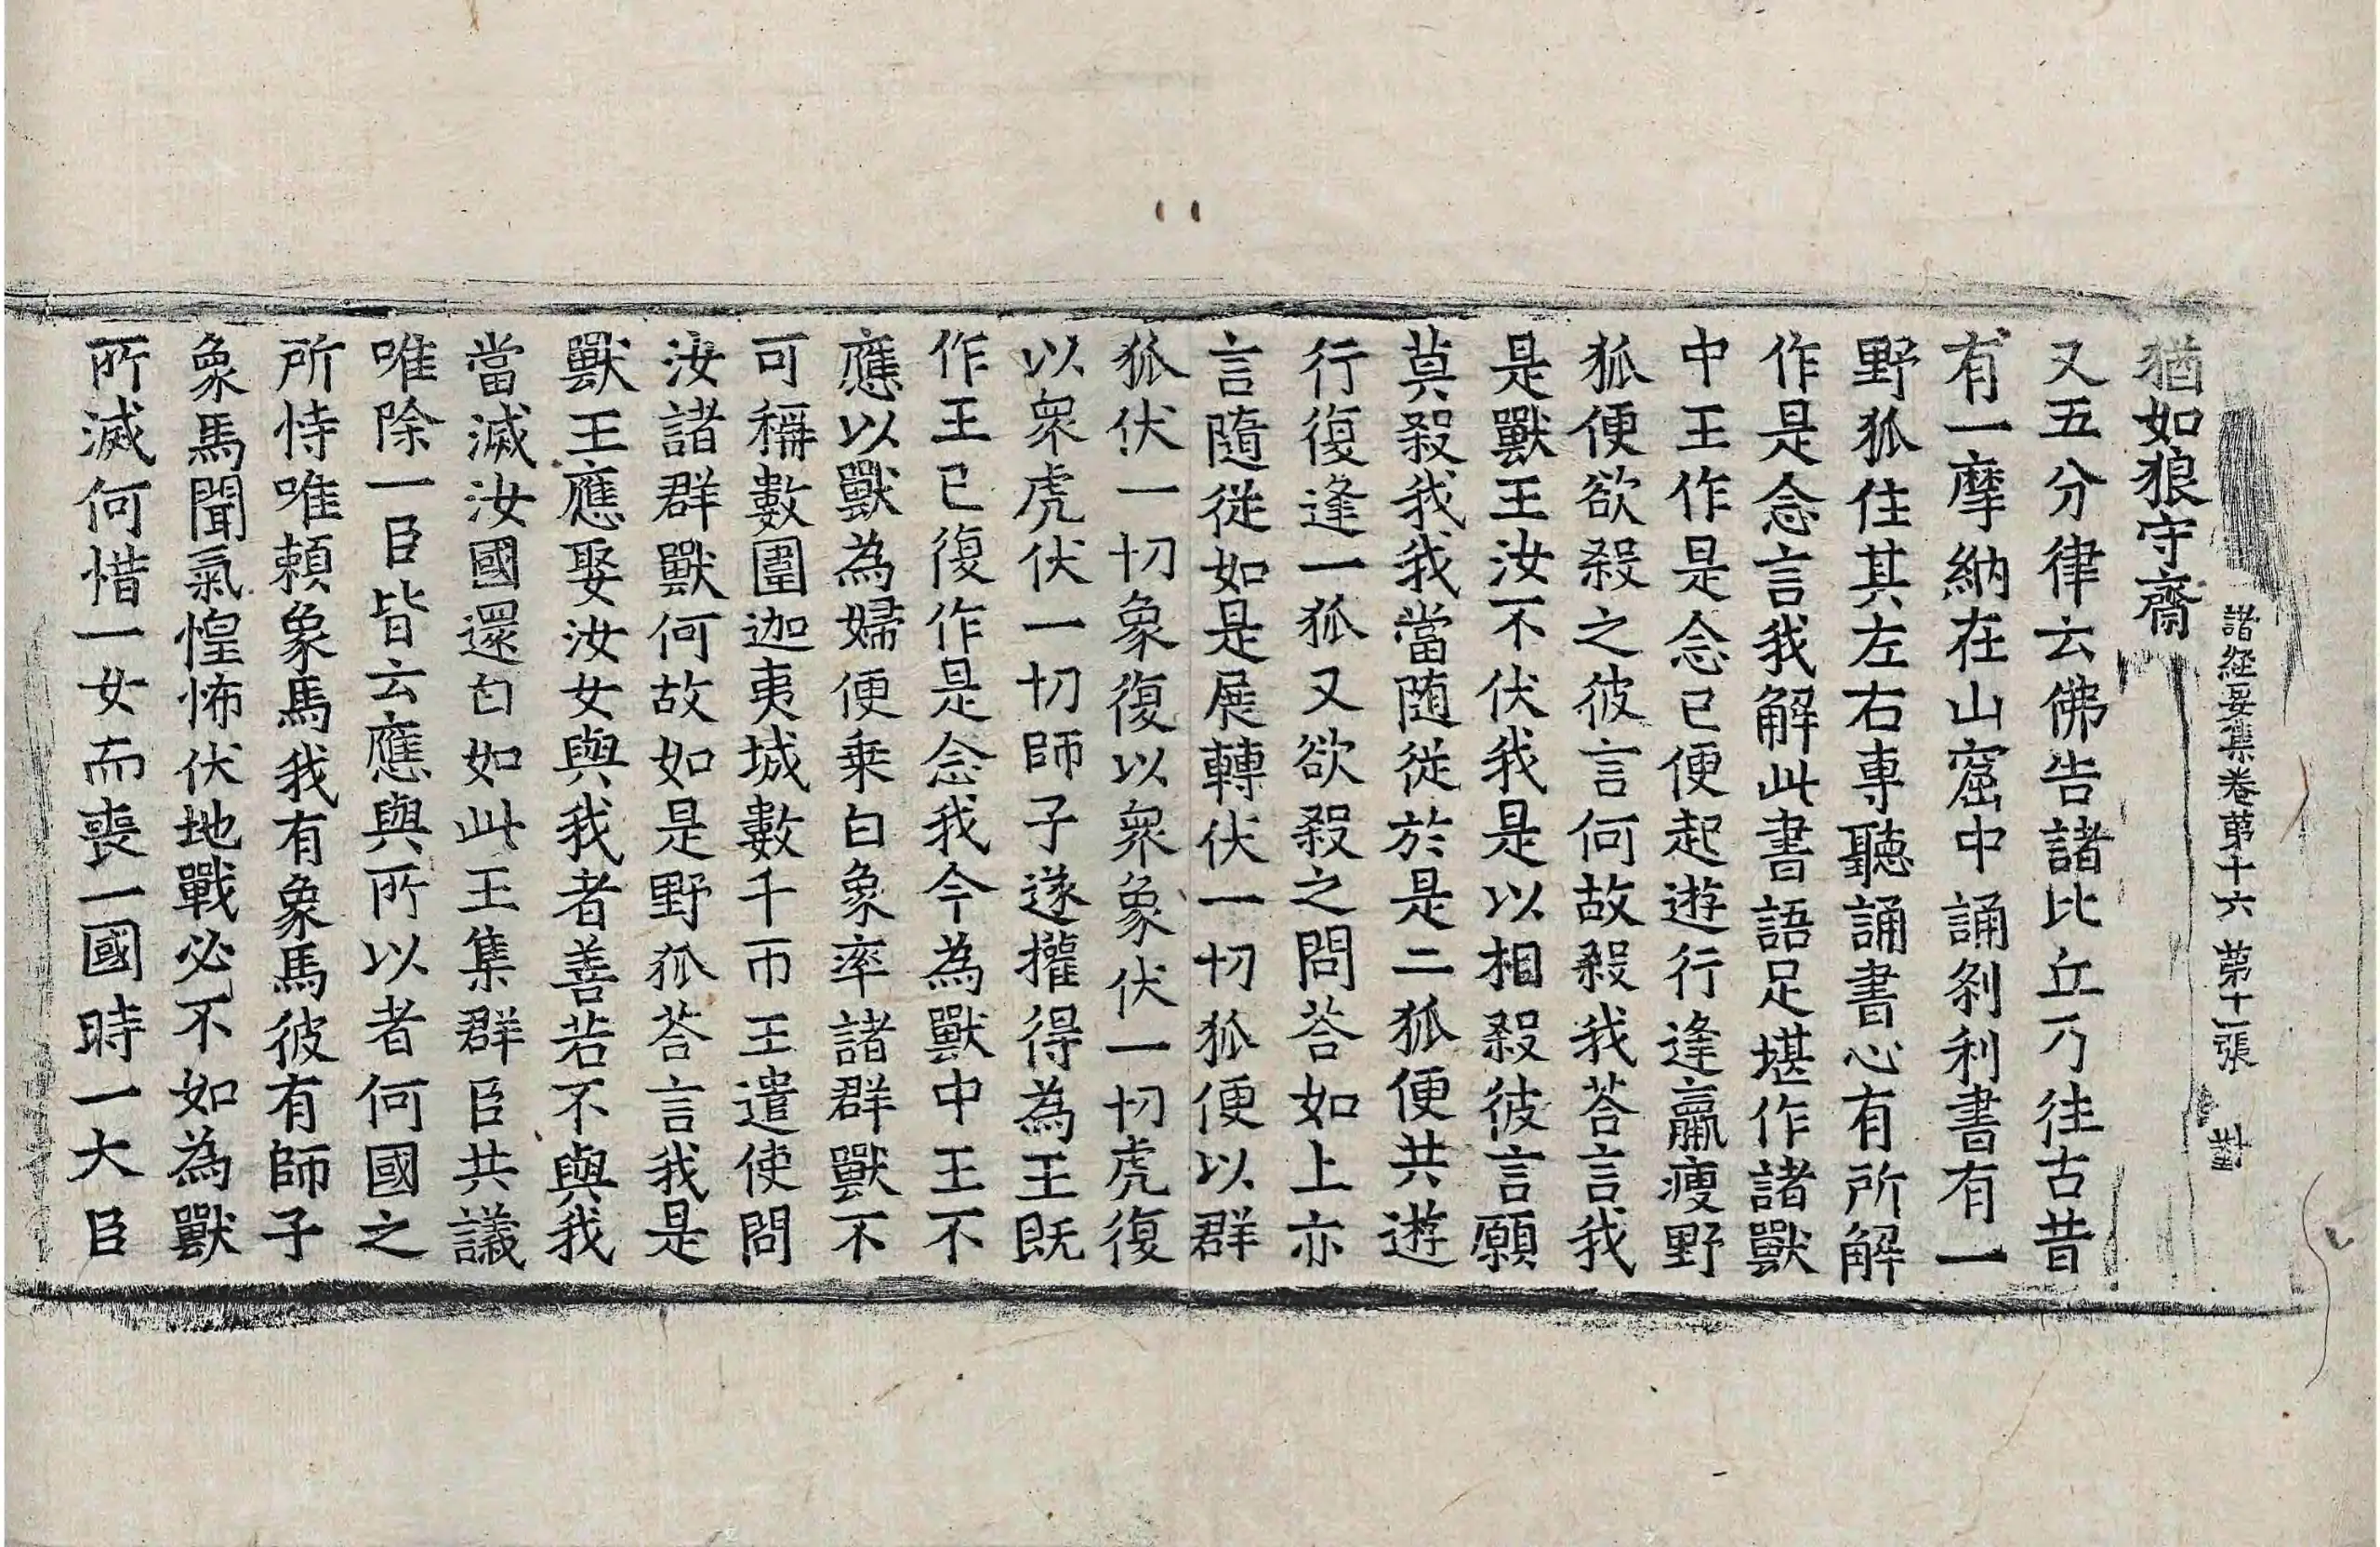 諸經要集卷第十六 第十一張 對
猶如狼守齋
又五分律云佛告諸比丘乃往古昔
有一摩納在山窟中誦刹利書有一
野狐住其左右專聽誦書心有所解
作是念言我解此書語足堪作諸獸
中王作是念已便起遊行逢羸瘦野
狐便欲殺之彼言何故殺我荅言我
是獸王汝不伏我是以相殺彼言願
莫殺我我當随從於是二狐便共遊
行復逢一狐又欲殺之問荅如上亦
言隨從如是展轉伏一切狐便以群
狐伏一切象復以衆象伏一切虎復
以衆虎伏一切師子遂攉得為王既
作王已復作是念我今為獸中王不
應以獸為婦便乗白象率諸群獸不
可稱數圍迦夷城數千帀王遣使問
汝諸群獸何故如是野狐荅言我是
獸王應娶汝女與我者善若不與我
當滅汝國還白如此王集群臣共議
唯除一臣皆云應與所以者何國之
所恃唯賴象馬我有象馬彼有師子
象馬聞氣惶怖伏地戰必不如為獸
所滅何惜一女而喪一國時一大臣